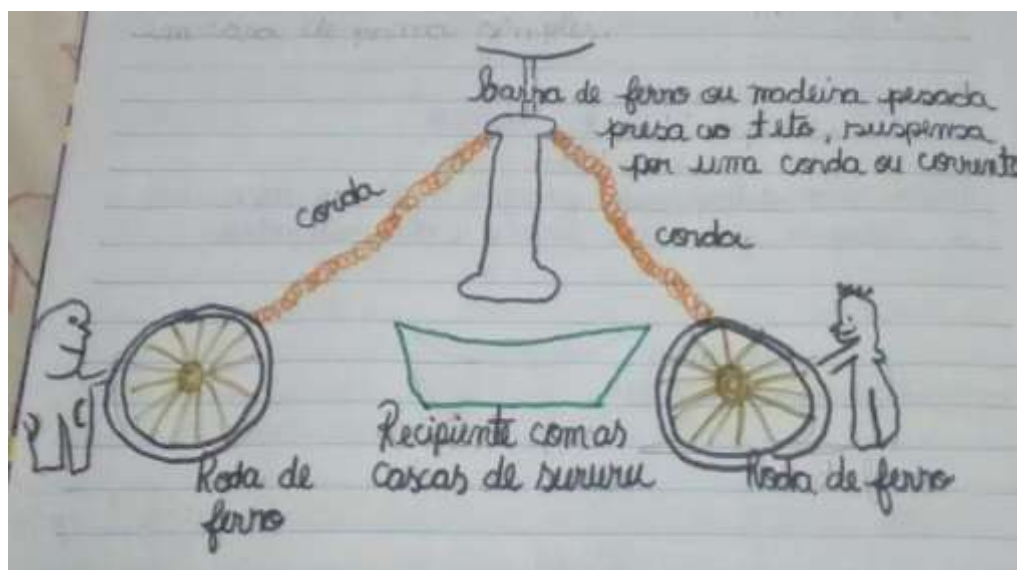 barra de ferro ou madeira pesada
presa ao teto, suspensa
por uma corda ou corrente
corda
corda
Recipiente com as
cascas de sururu
Roda de
ferro
Roda de ferro